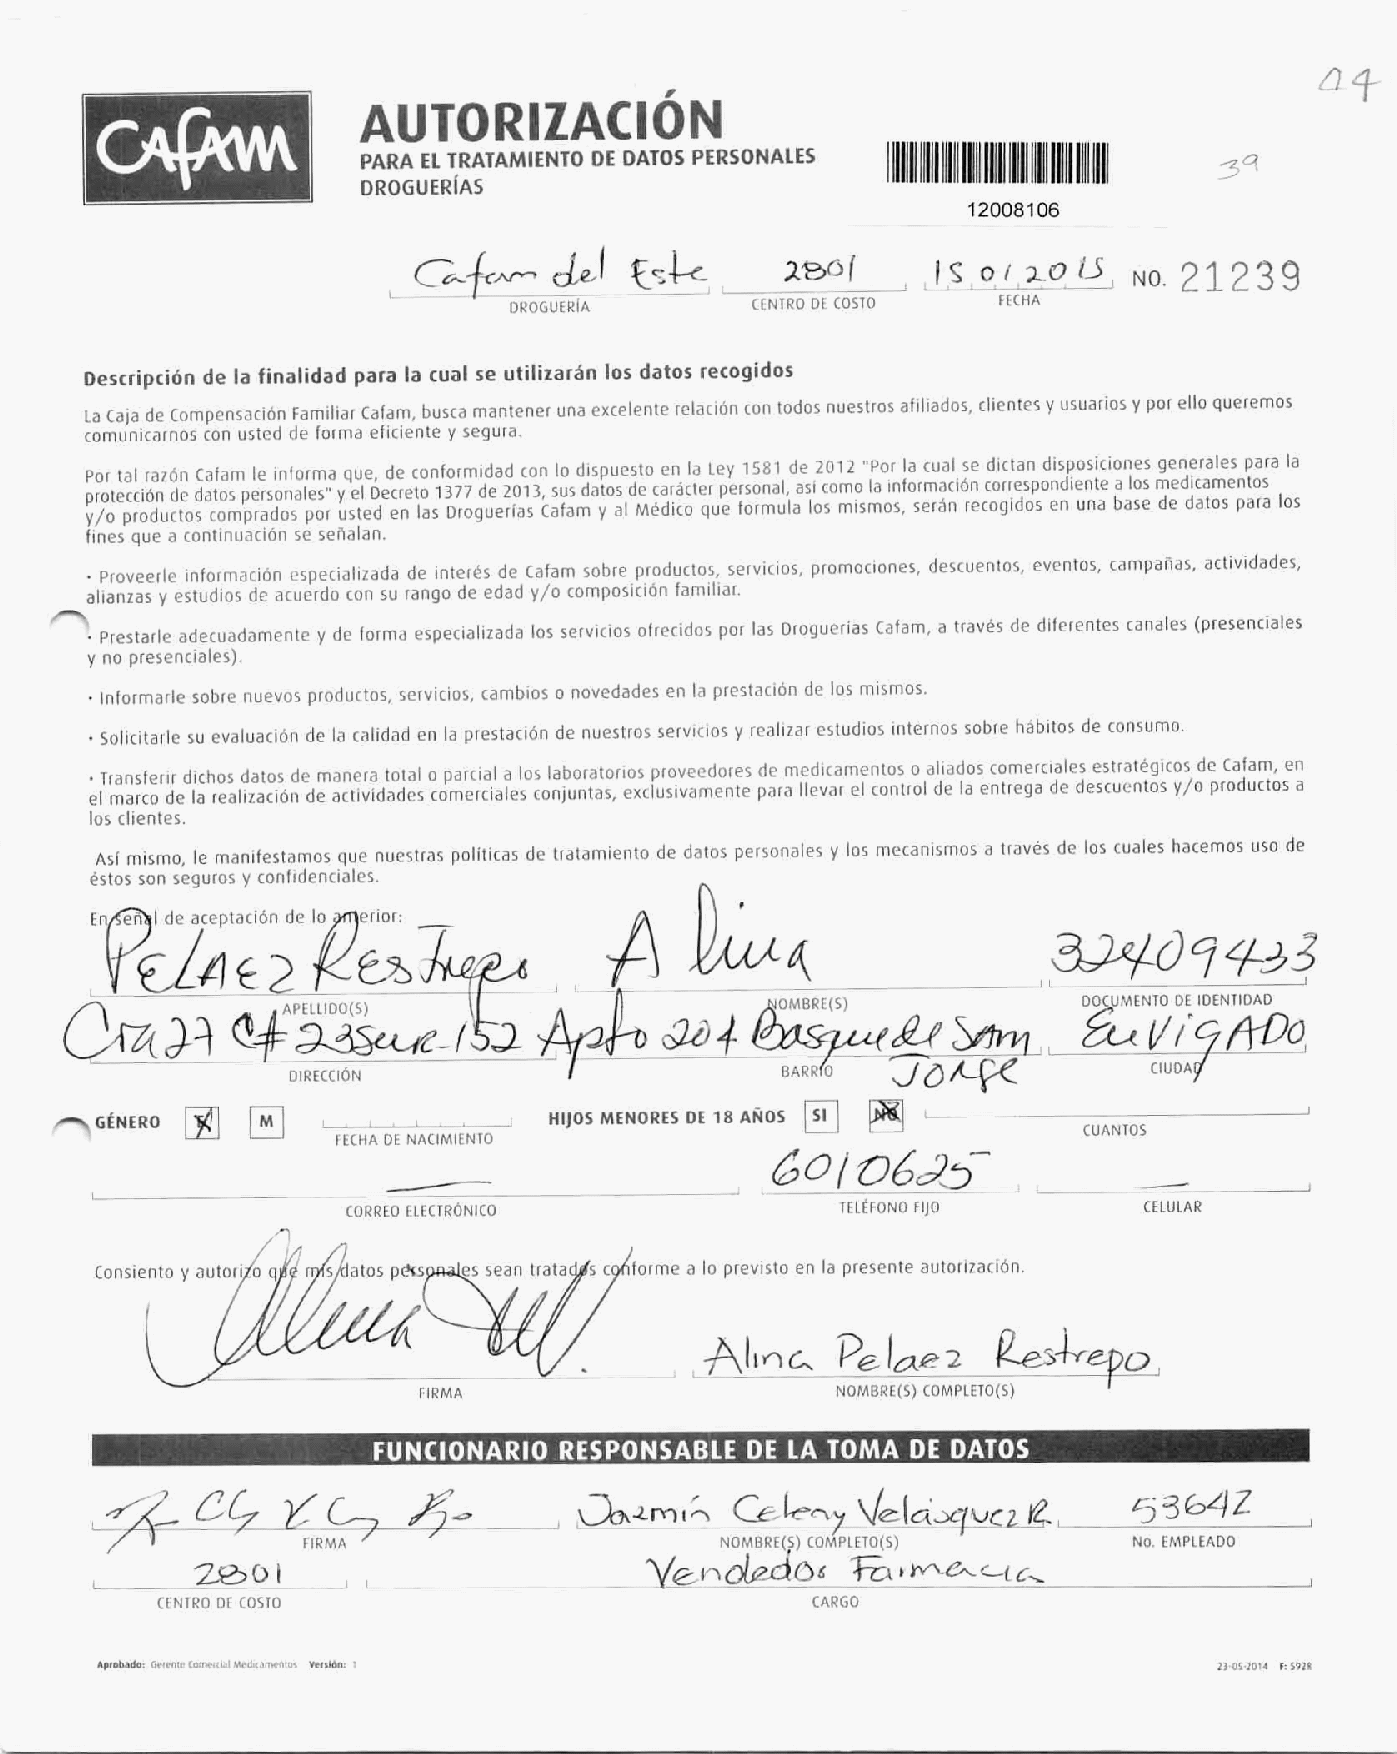 44
CAfAM
AUTORIZACIÓN
PARA EL TRATAMIENTO DE DATOS PERSONALES
DROGUERÍAS
39
12008106
Cafam del Este 2801 15 01 2015 NO. 21239
DROGUERÍA CENTRO DE COSTO FECHA
Descripción de la finalidad para la cual se utilizarán los datos recogidos
La Caja de Compensación Familiar Cafam, busca mantener una excelente relación con todos nuestros afiliados, clientes y usuarios y por ello queremos
comunicarnos con usted de forma eficiente y segura.
Por tal razón Cafam le informa que, de conformidad con lo dispuesto en la Ley 1581 de 2012 "Por la cual se dictan disposiciones generales para la
protección de datos personales" y el Decreto 1377 de 2013, sus datos de carácter personal, así como la información correspondiente a los medicamentos
y/o productos comprados por usted en las Droguerías Cafam y al Médico que formula los mismos, serán recogidos en una base de datos para los
fines que a continuación se señalan.
· Proveerle información especializada de interés de Cafam sobre productos, servicios, promociones, descuentos, eventos, campañas, actividades,
alianzas y estudios de acuerdo con su rango de edad y/o composición familiar.
· Prestarle adecuadamente y de forma especializada los servicios ofrecidos por las Droguerías Cafam, a través de diferentes canales (presenciales
y no presenciales).
· Informarle sobre nuevos productos, servicios, cambios o novedades en la prestación de los mismos.
· Solicitarle su evaluación de la calidad en la prestación de nuestros servicios y realizar estudios internos sobre hábitos de consumo.
· Transferir dichos datos de manera total o parcial a los laboratorios proveedores de medicamentos o aliados comerciales estratégicos de Cafam, en
el marco de la realización de actividades comerciales conjuntas, exclusivamente para llevar el control de la entrega de descuentos y/o productos a
los clientes.
Así mismo, le manifestamos que nuestras políticas de tratamiento de datos personales y los mecanismos a través de los cuales hacemos uso de
éstos son seguros y confidenciales.
En señal de aceptación de lo anterior:
PELAEZ RESTrepo Alina 32409433
APELLIDO(S) NOMBRE(S) DOCUMENTO DE IDENTIDAD
Cra 27 C# 23 Sur-152 Apto 204 Bosque de SAm JORGE EnVigADO
DIRECCIÓN BARRIO CIUDAD
GÉNERO F M FECHA DE NACIMIENTO HIJOS MENORES DE 18 AÑOS SI NO CUANTOS
6010625
CORREO ELECTRÓNICO TELÉFONO FIJO CELULAR
Consiento y autorizo que mis datos personales sean tratados conforme a lo previsto en la presente autorización.
Alina Pelaez Restrepo
FIRMA NOMBRE(S) COMPLETO(S)
FUNCIONARIO RESPONSABLE DE LA TOMA DE DATOS
Jazmín Celeny Velásquez R. 53642
FIRMA NOMBRE(S) COMPLETO(S) No. EMPLEADO
2801 Vendedor Farmacia
CENTRO DE COSTO CARGO
Aprobado: Gerente Comercial Medicamentos Versión: 1
23-05-2014 F: 592R